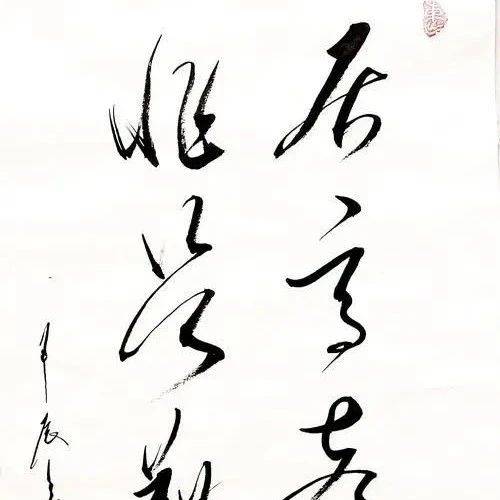 居高声
非是
甲辰